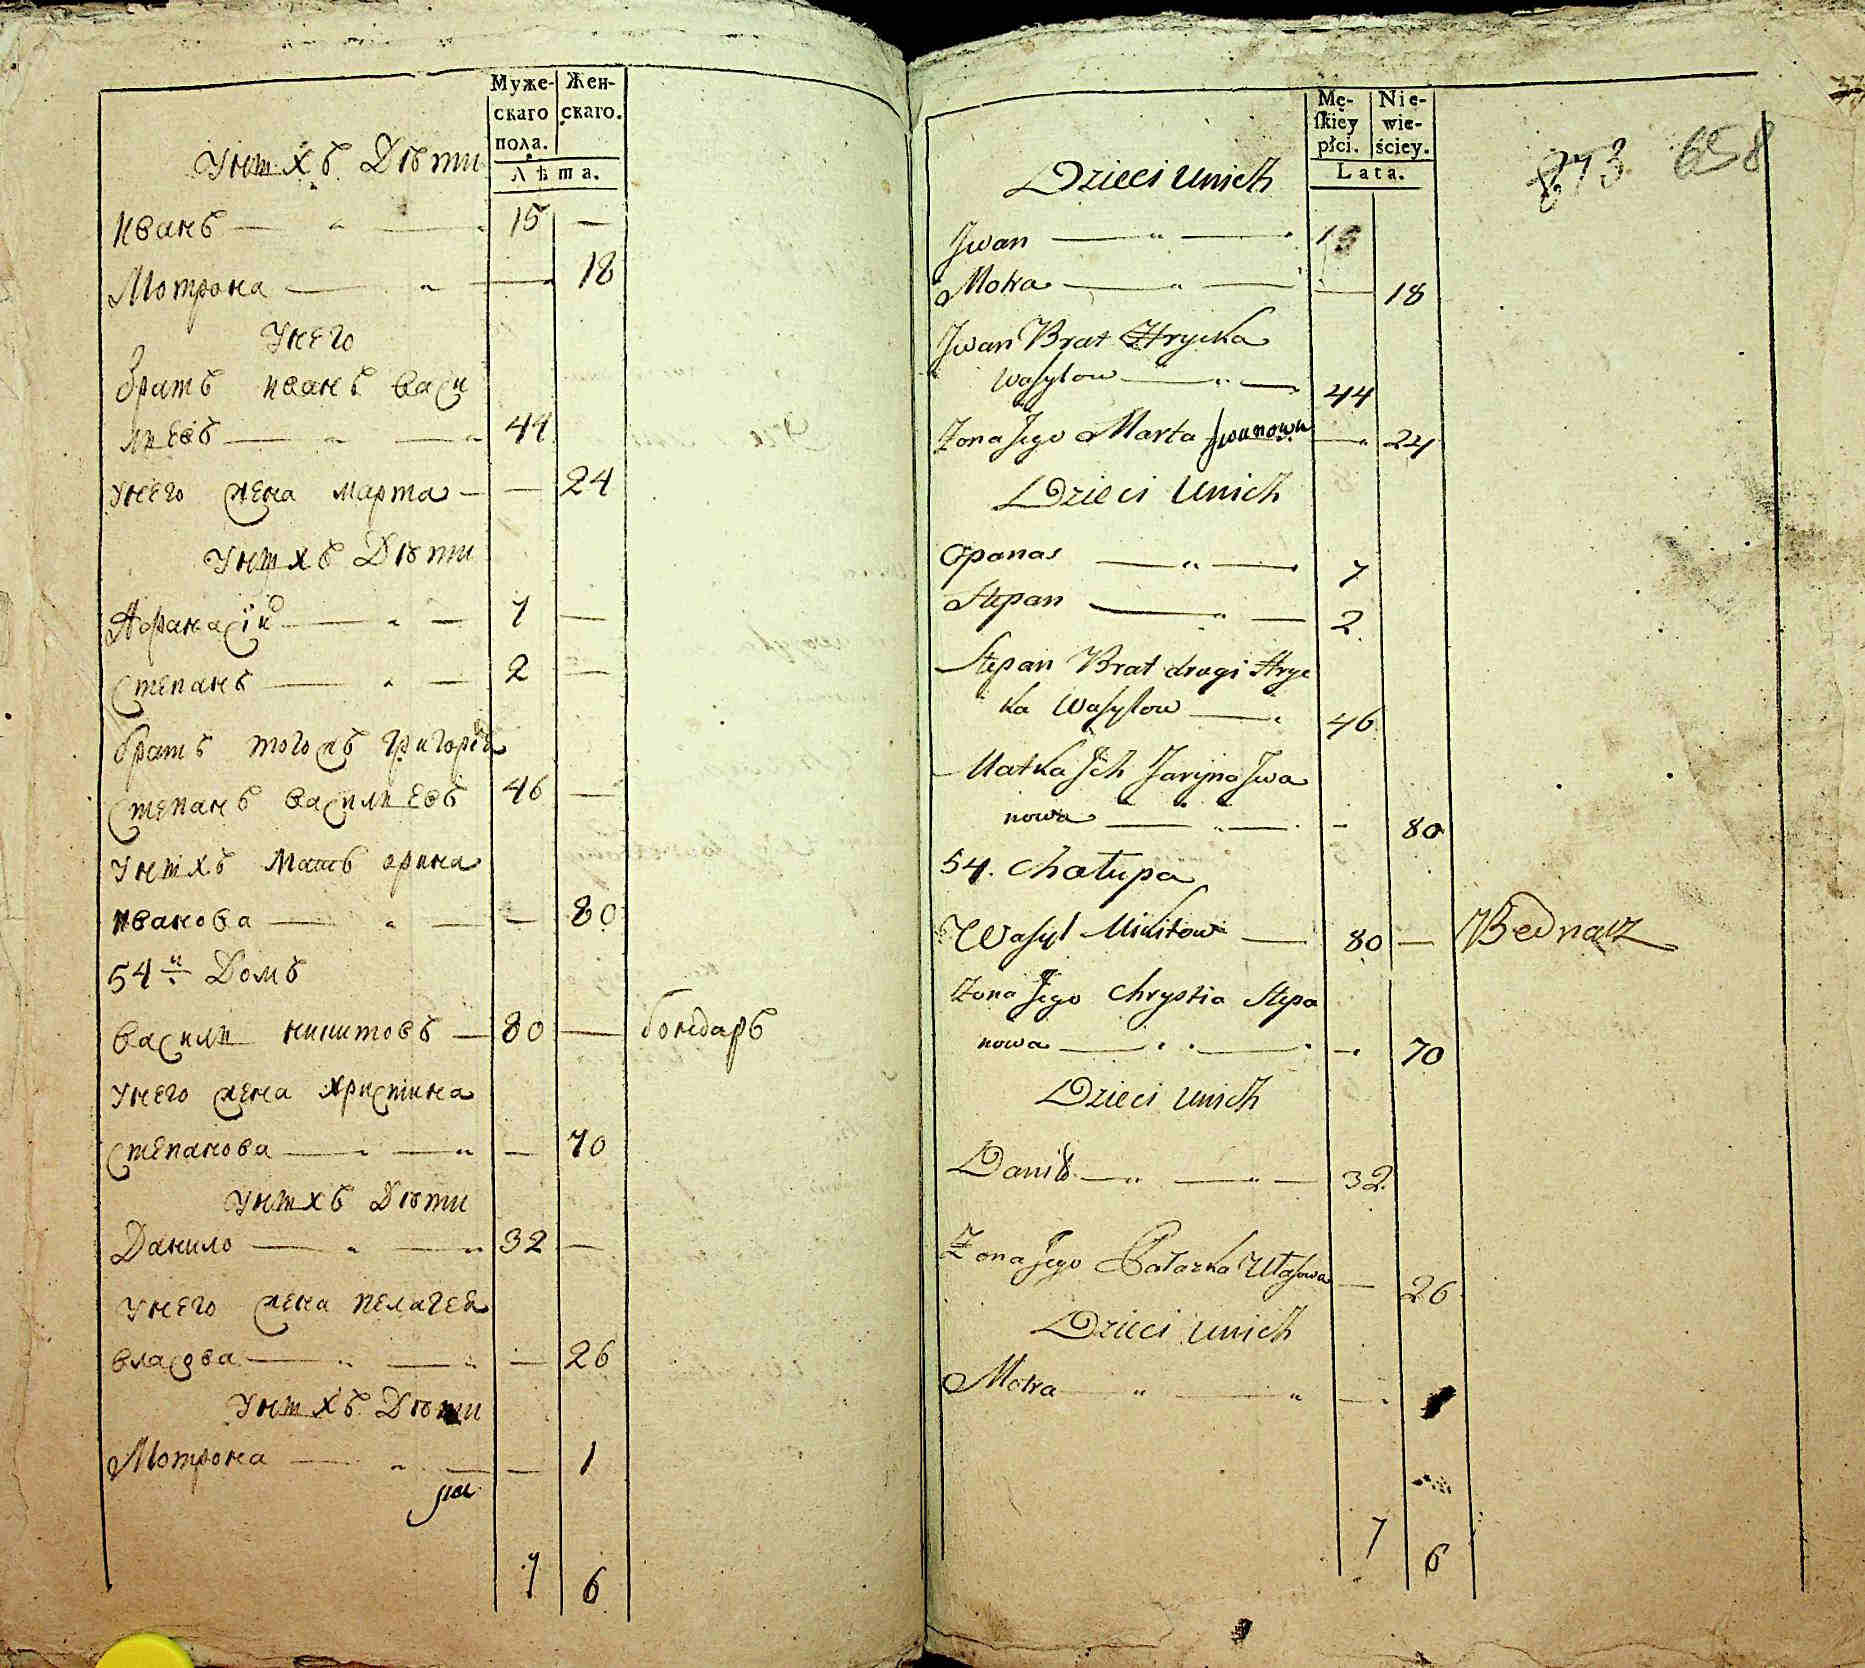 Муже-
скаго
пола.
Жен-
скаго.
Лѣта.
У нихъ Дѣти
иванъ — „ — 15 —
Мотрона — „ — 18
У него
братъ иванъ васи
лиевъ — „ — „ 44
У него жена марта — — 24
У нихъ Дѣти
Афанасiй — „ — 7 —
Степанъ — „ — 2 —
братъ тогожъ григорiя
Степанъ василиевъ 46 —
У нихъ мать орина
иванова — „ — — 80
54й Домъ
васили никитовъ — 80 — бондарь
У него жена христина
Степанова — „ — „ — 70
У нихъ Дѣти
Данило — „ — „ 32 —
У него жена пелагея
власова — „ — „ — 26
У нихъ Дѣти
Мотрона — „ — — 1
7 6
Mę-
ſkiey
płci.
Nie-
wie-
ściey.
Lata.
873 658
Dzieci unich
Jwan — „ — 15
Motra — „ — — 18
Jwan Brat Hrycka
Wasylow — „ — 44
Zona Jego Marta Jwanowa — „ 24
Dzieci Unich
Opanas — „ — 7
Stepan — „ — 2
Stepan Brat drugi Hryc
ka Wasylow — „ 46
Matka Jch Jaryna Jwa
nowa — „ — - 80
54. Chałupa
Wasyl Mikitow — 80 — Bednarz
Zona Jego Chrystia Stepa
nowa — „ — 70
Dzieci unich
Daniło — „ — „ — 32
Zona Jego Pałazka Własowa — 26
Dzieci unich
Motra — „ — „ —
7 6